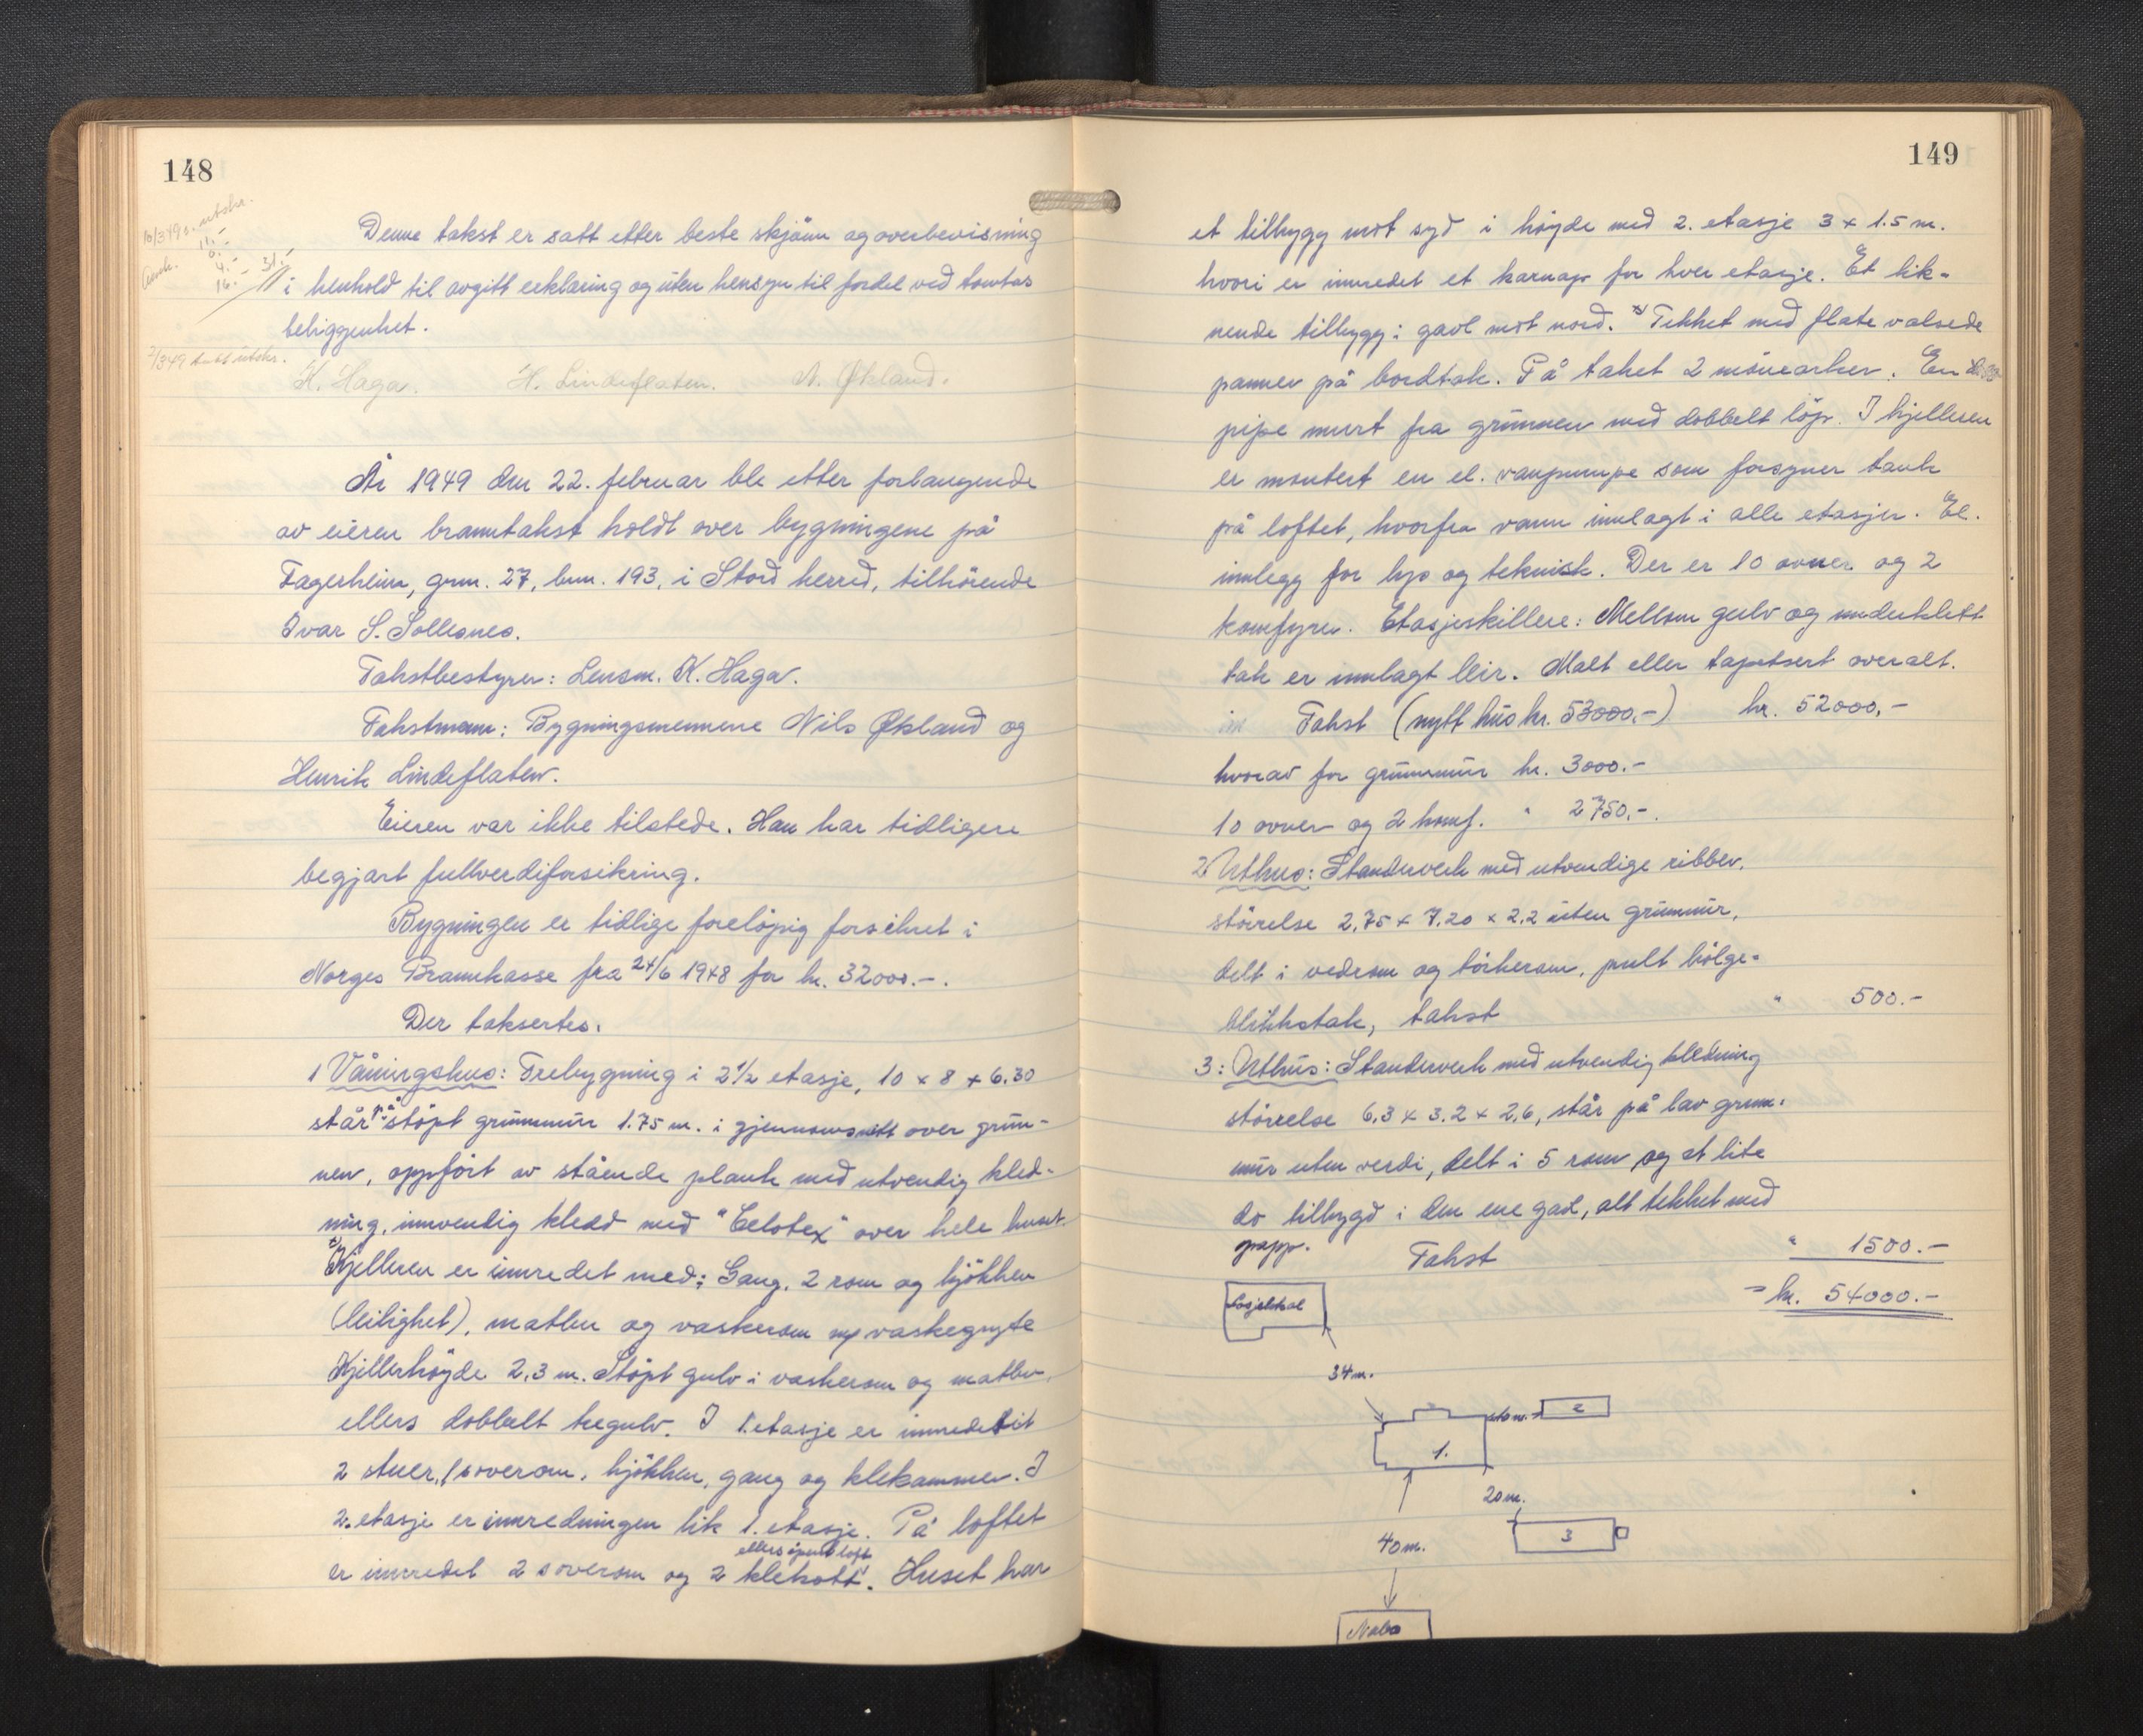 148
10/3 49 s. utskr.
11.-
6.-
4.-
16.-
31.-
Denne takst er satt etter beste skjønn og overbevisning
i henhold til avgitt erklæring og uten hensyn til fordel ved tomtas
beliggenhet.
/3 49 satt utskr.
K. Haga. H. Lindeflaten. N. Økland.
År 1949 den 22. februar ble etter forlangende
av eieren branntakst holdt over bygningene på
Fagerheim, grnn. 27, bnn. 193, i Stord herred, tilhørende
Ivar S. Sollesnes.
Takstbestyrer: Lensm. K. Haga.
Takstmenn: Bygningsmennene Nils Økland og
Henrik Lindeflaten.
Eieren var ikke tilstede. Han har tidligere
begjært fullverdiforsikring.
Bygningen er tidlige foreløpig forsikret i
Norges Brannkasse fra 24/6 1948 for kr. 32000.-.
Der taksertes.
1 Våningshus: Trebygning i 2 1/2 etasje, 10 x 8 x 6.30
står på støpt grunnmur 1.75 m. i gjennomsnitt over grun-
nen, oppført av stående plank med utvendig kled-
ning, innvendig kledd med "Celotex" over hele huset.
Kjelleren er innredet med: Gang, 2 rom og kjøkken
(leilighet), matbu og vaskerom m/ vaskegryte
Kjellerhøyde 2.3 m. Støpt gulv i vaskerom og matbu,
ellers dobbelt tregulv. I 1. etasje er innredet
2 stuer, 1 soverom, kjøkken, gang og klekammer. I
2. etasje er innredningen lik 1. etasje. På loftet
ellers åpent loft
er innredet 2 soverom og 2 klekott. Huset har
149
et tilbygg mot syd i høyde med 2. etasje 3 x 1.5 m.
hvori er innredet et karnap for hver etasje. Et lik-
nende tilbygg i gavl mot nord. Tekket med flate valsede
panner på bordtak. På taket 2 mønearker. En
pipe murt fra grunnen med dobbelt løp. I kjelleren
er montert en el. vanpumpe som forsyner tank
på loftet, hvorfra vann innlagt i alle etasjer. El.
innlegg for lys og teknisk. Der er 10 ovner og 2
komfyrer. Etasjeskillere: Mellom gulv og underkledt
tak er innlagt leir. Malt eller tapetsert overalt.
Takst (nytt hus kr. 53000,-) kr. 52000,-
hvorav for grunnmur kr. 3000.-
10 ovner og 2 komf. " 2750,-.
2 Uthus: Standerverk med utvendige ribber,
størrelse 2,75 x 7,20 x 2,2 uten grunnmur,
delt i vedrom og tørkerom, pult bølge-
blikkstak, takst " 500.-
3: Uthus: Standerverk med utvendig kledning
størrelse 6,3 x 3.2 x 2,6, står på lav grunn-
mur uten verdi, delt i 5 rom og et lite
do tilbygd i den ene gavl, alt tekket med
papp. Takst " 1500.-
= kr. 54000.-
34 m.
2
1.
20 m.
3
40 m.
Nabo